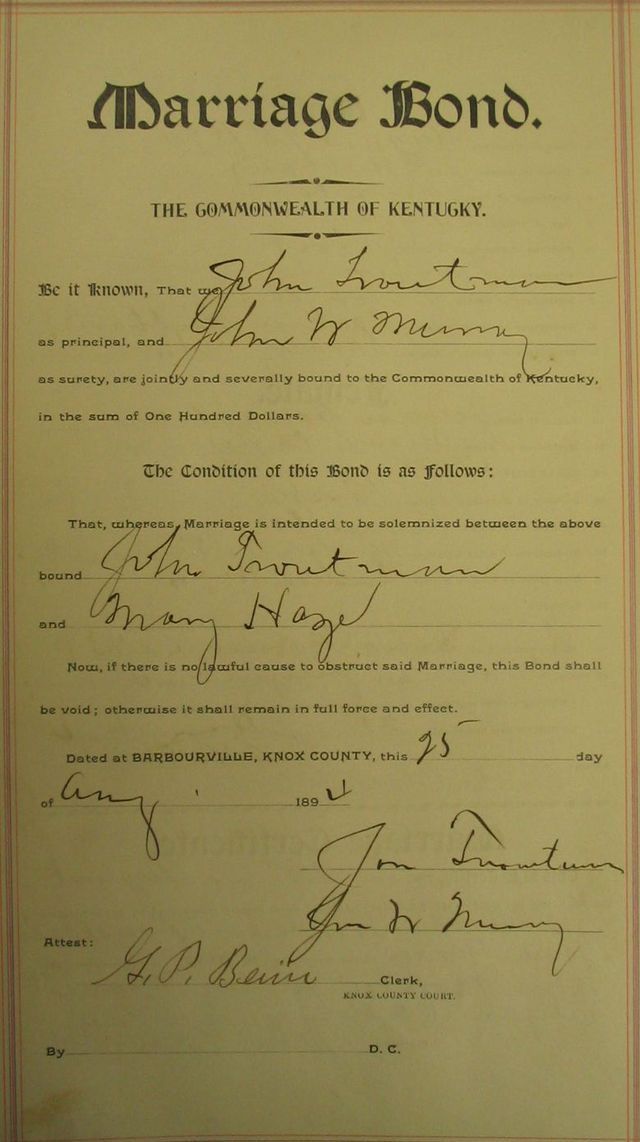 Marriage Bond.
THE COMMONWEALTH OF KENTUCKY.
Be it Known, That we John Troutman
as principal, and John W Murray
as surety, are jointly and severally bound to the Commonwealth of Kentucky,
in the sum of One Hundred Dollars.
The Condition of this Bond is as Follows:
That, whereas, Marriage is intended to be solemnized between the above
bound John Troutman
and Mary Haze
Now, if there is no lawful cause to obstruct said Marriage, this Bond shall
be void; otherwise it shall remain in full force and effect.
Dated at BARBOURVILLE, KNOX COUNTY, this 25 day
of Aug 1894
Jon Troutman
Jno W Murray
Attest:
G. P. Bain Clerk,
KNOX COUNTY COURT.
By D. C.